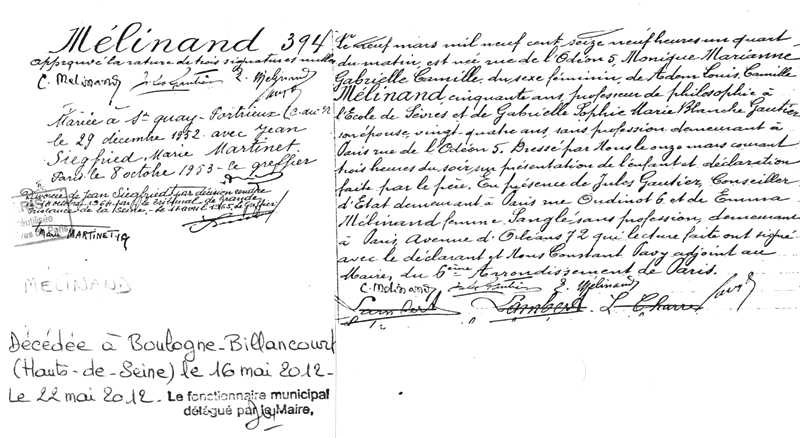 Mélinand 394
approuvé la rature de trois signatures nulles
C. Melinand Jules Gautier E. Mélinand
Pavy
Mariée à St Quay-Portrieux (C.-du-N)
le 29 décembre 1952 avec Jean
Siegfried, Marie Martinet.
Paris le 8 octobre 1953 - le greffier
Divorcée de Jean Siegfried par décision rendue
par le tribunal de Grande
Instance de la Seine - le 1965 - Le Greffier
MARTINET
MÉLINAND
Décédée à Boulogne-Billancourt
(Hauts-de-Seine) le 16 mai 2012 -
Le 22 mai 2012 - Le fonctionnaire municipal
délégué par le Maire,
Le neuf mars mil neuf cent seize neuf heures un quart
du matin, est née, rue de l'Odéon 5, Monique Marianne
Gabrielle Camille, du sexe féminin, de Adom Louis Camille
Mélinand, cinquante ans, professeur de philosophie à
l'Ecole de Sèvres et de Gabrielle Sophie Marie Blanche Gautier,
son épouse, vingt-quatre ans, sans profession demeurant à
Paris rue de l'Odéon 5. Dressé par Nous le onze mars courant
trois heures du soir, sur présentation de l'enfant et déclaration
faite par le père. En présence de Jules Gautier, Conseiller
d'Etat demeurant à Paris rue Oudinot 6 et de Emma
Mélinand femme Sanglé sans profession, demeurant
à Paris, Avenue d'Orléans 72 qui lecture faite ont signé
avec le déclarant et Nous Constant Pavy adjoint au
Maire, du 6ème Arrondissement de Paris.
C. Melinand Jules Gautier E. Mélinand Pavy
Lambert L. Charre